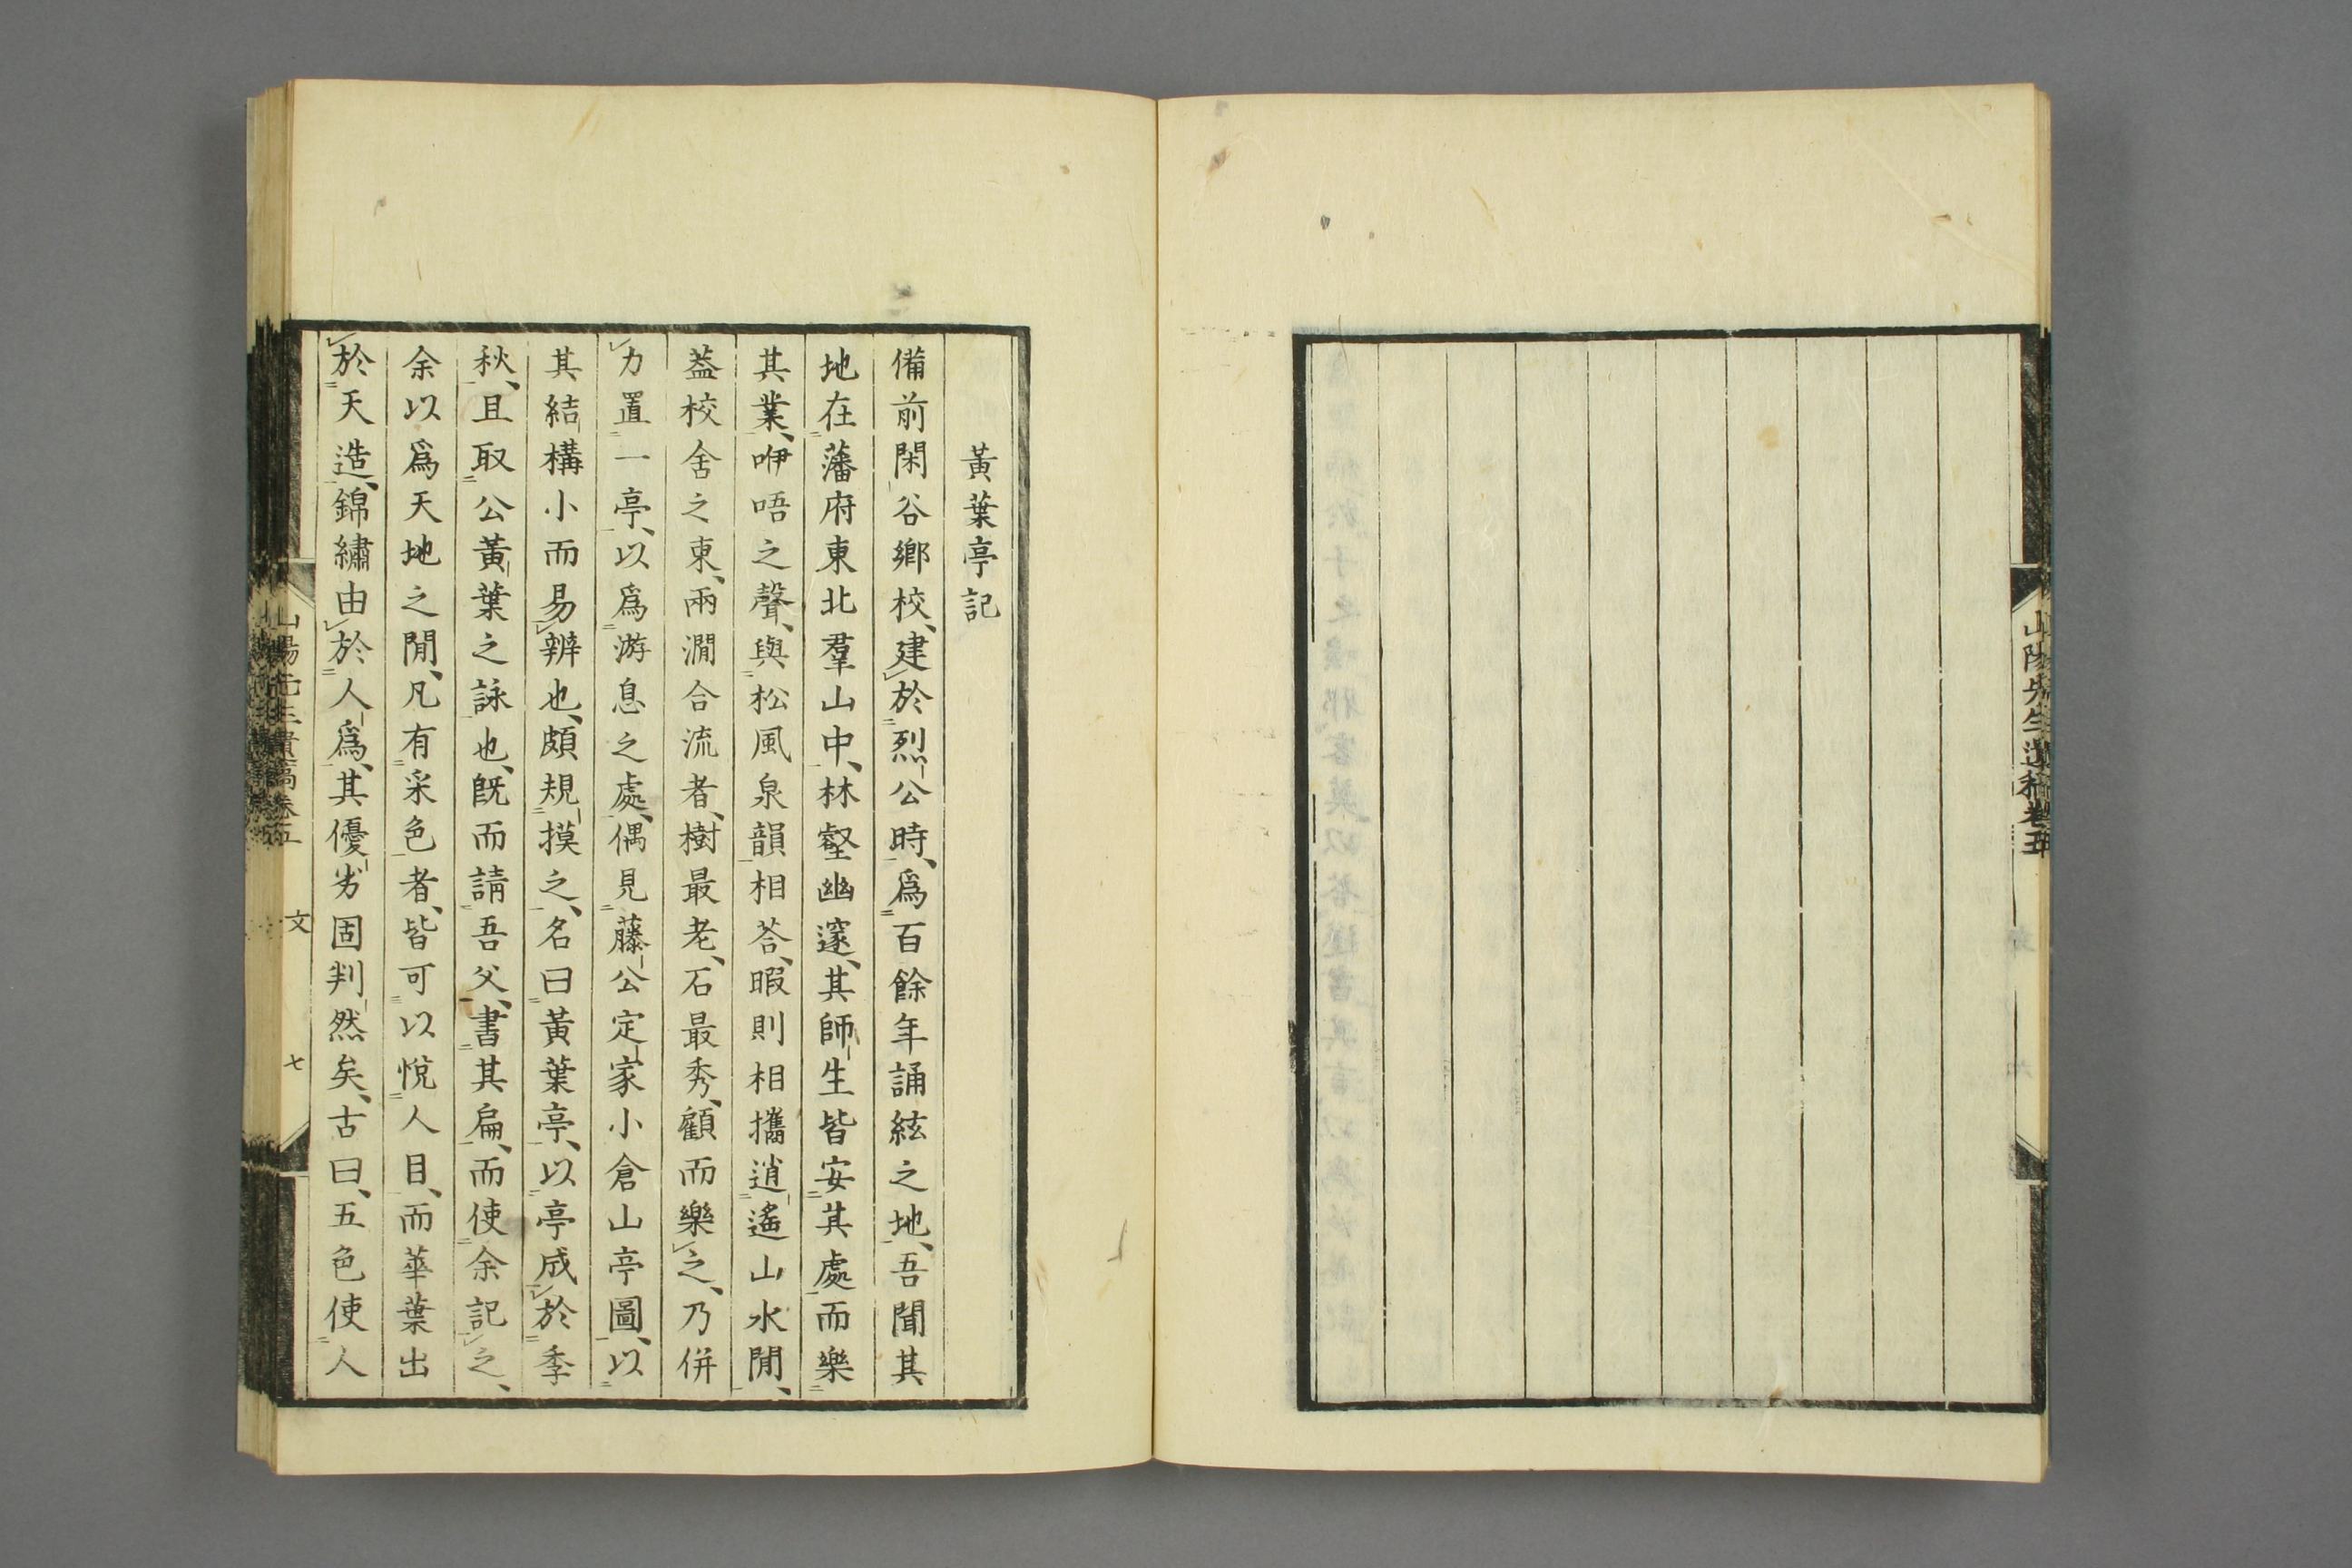 山陽先生遺稿卷五
黃葉亭記
備前閑谷鄉校、建於烈公時、爲百餘年誦絃之地、吾聞其
地在藩府東北羣山中、林壑幽邃、其師生皆安其處而樂
其業、咿唔之聲、與松風泉韻相荅、暇則相攜逍遙山水閒、
葢校舍之東、兩澗合流者、樹最老、石最秀、顧而樂之、乃併
力置一亭、以爲游息之處、偶見藤公定家小倉山亭圖、以
其結構小而易辨也、頗規摸之、名曰黃葉亭、以亭成於季
秋、且取公黃葉之詠也、既而請吾父、書其扁、而使余記之、
余以爲天地之閒、凡有采色者、皆可以悅人目、而華葉出
於天造、錦繡由於人爲、其優劣固判然矣、古曰、五色使人
山陽先生遺稿卷五 文 七